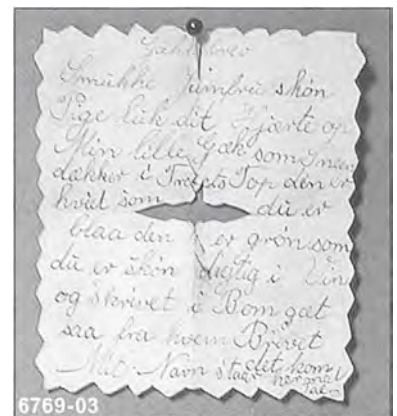 Gækkebrev
Smukke Jumfru skön
Pige luk dit Hjærte op
Min lille Gæk som Sneen
dækker i Træets Top den er
hvid som du er
blaa den er grön som
du er skön dejtig i Vin
og Skrivet i Bom gæt
saa fra hvem Brevet det kom
Mit Navn staar hermed
6769-03